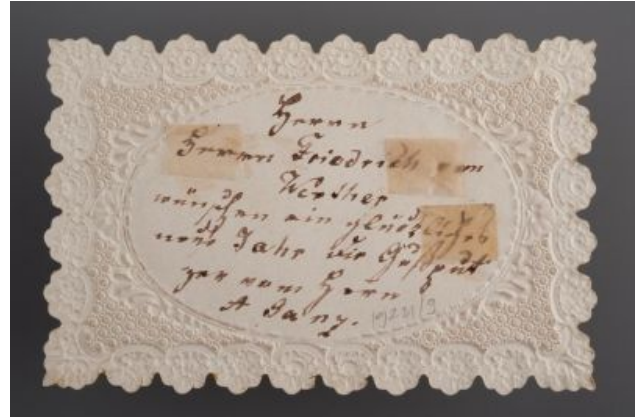 Herrn
Herrn Friedrich von
Werther
wünschen ein glückliches
neus Jahr die Gußput
zer vom Herrn
A Janz.